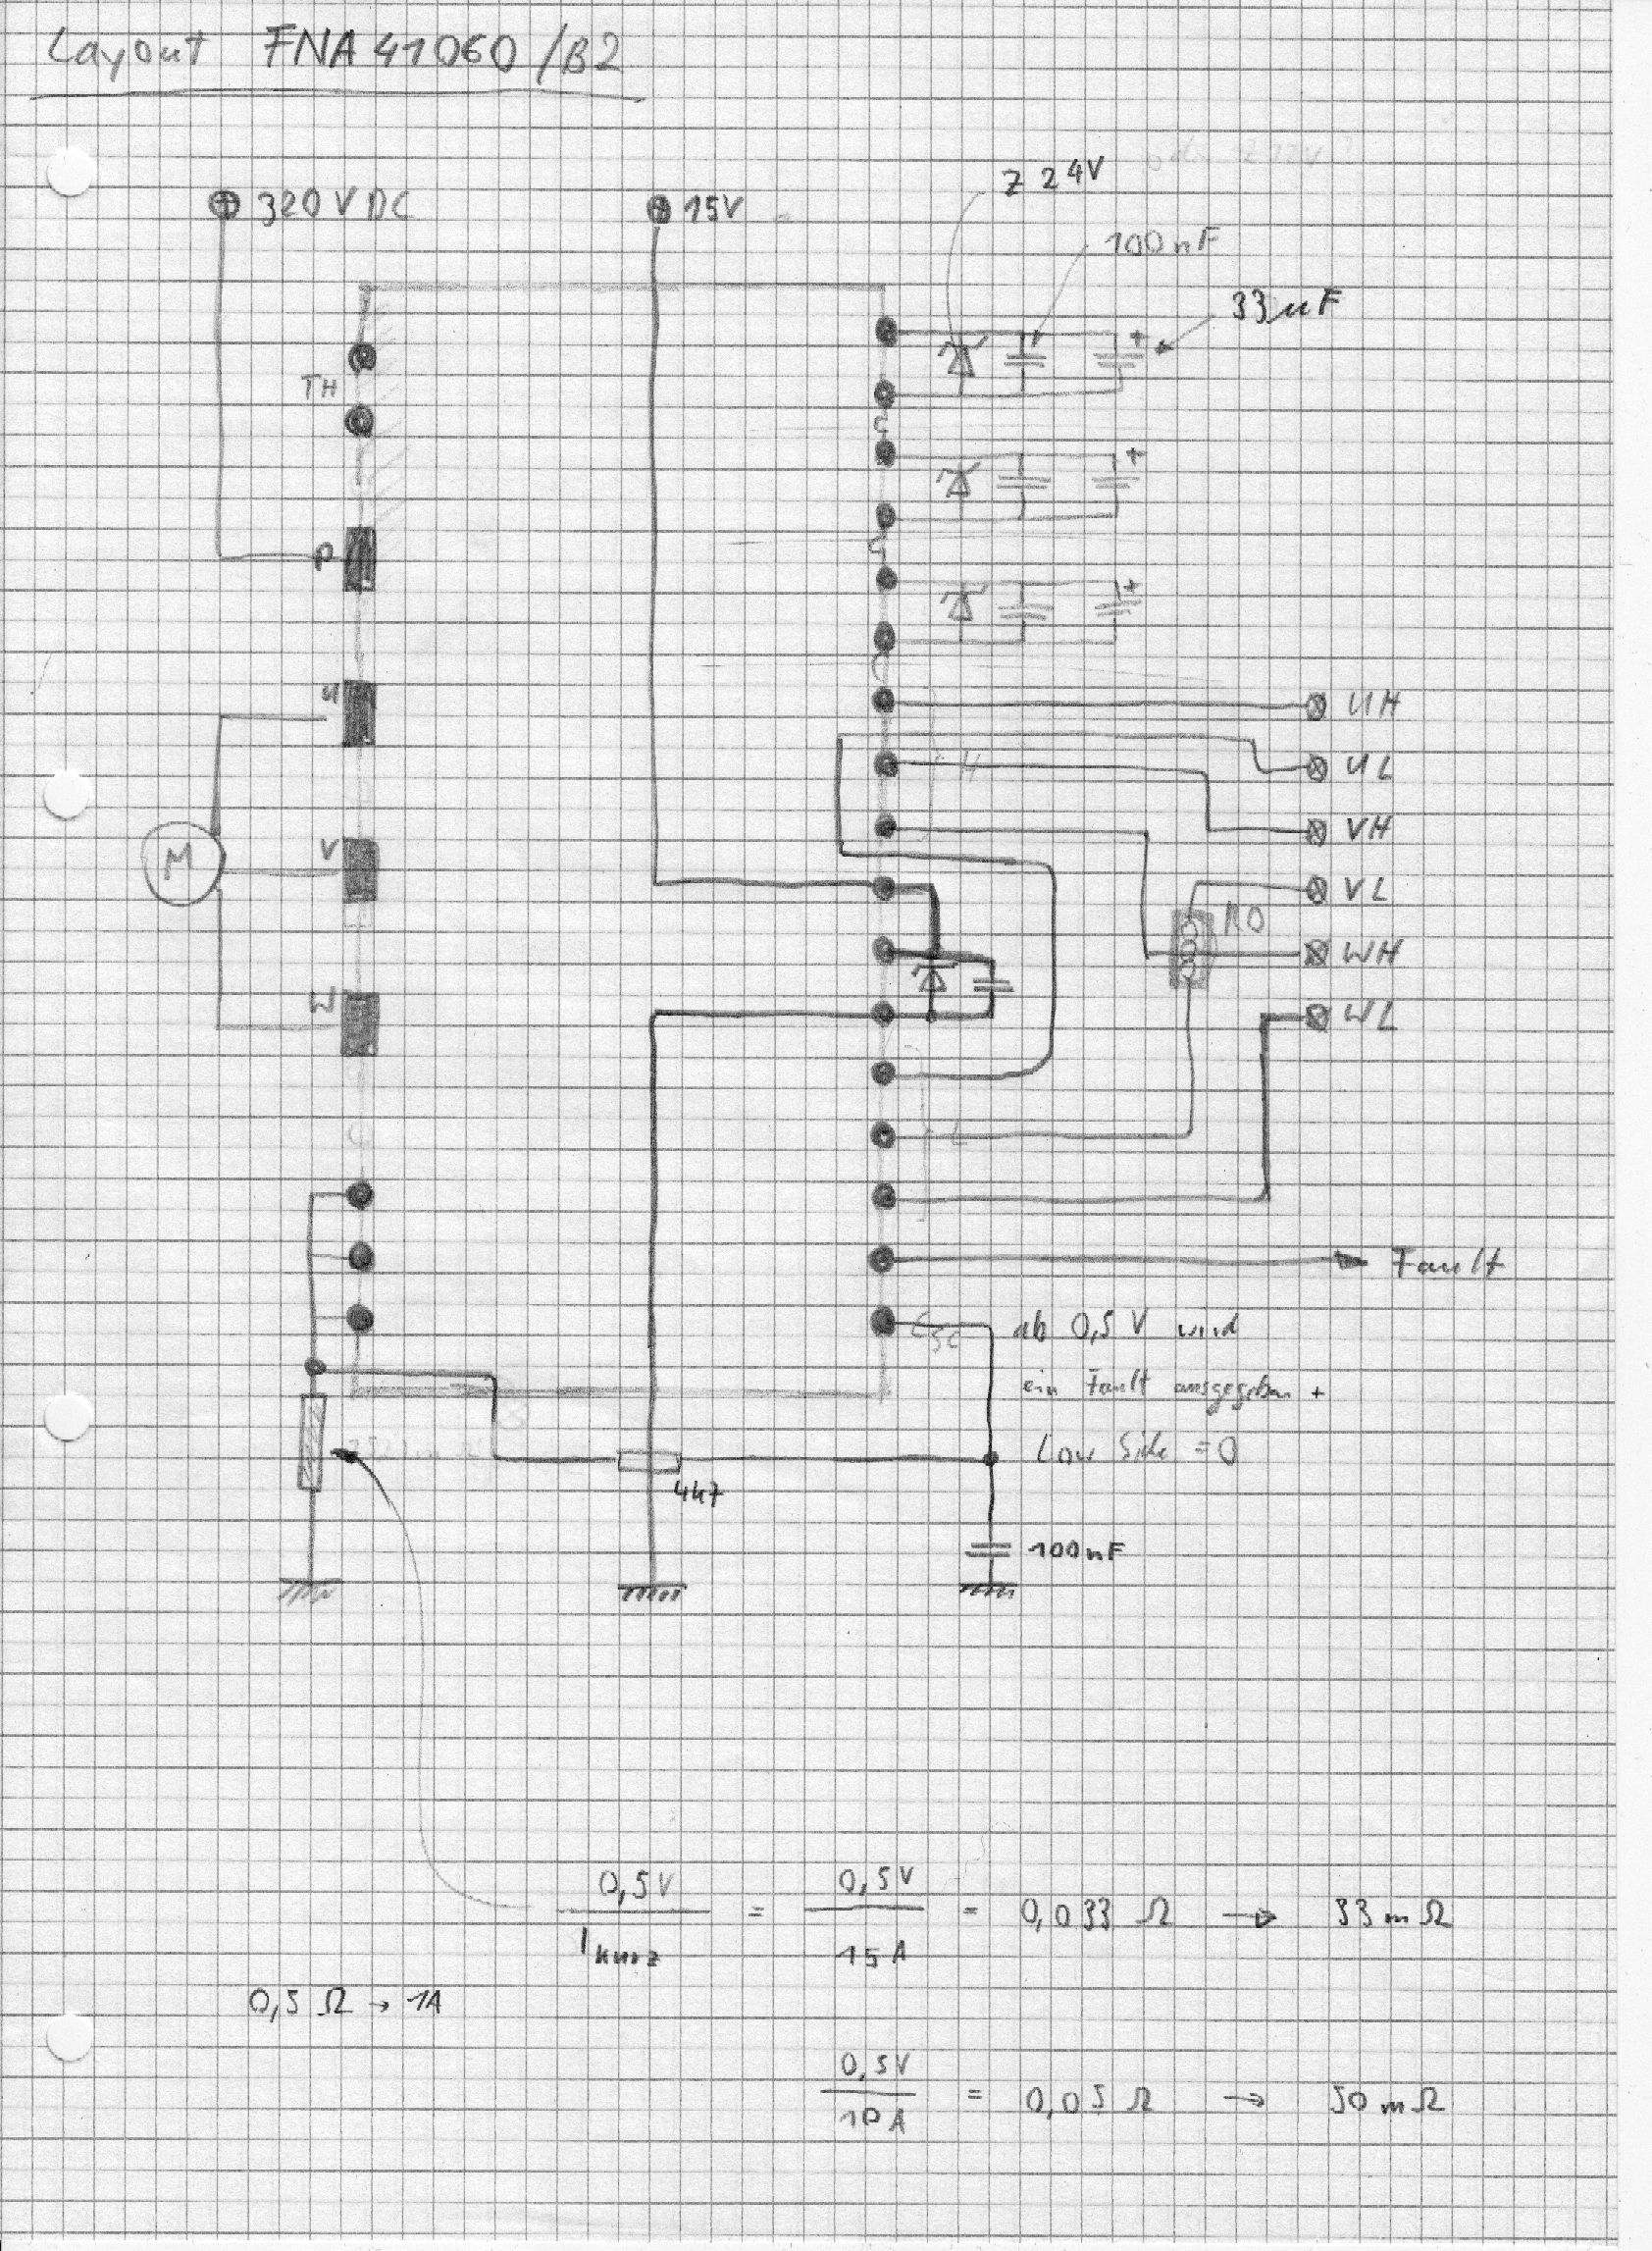 Layout FNA 41060/B2
Z 24V
320 V DC
15V
100nF
33µF
+
TH
+
P
+
U
UH
H
UL
V
VH
M
VL
R0
W
WH
WL
L
Fault
CSC
ab 0,5 V wird
ein Fault ausgegeben +
Low Side = 0
4k7
100nF
0,5V / Ikurz = 0,5V / 15A = 0,033 Ω → 33 mΩ
0,5 Ω → 1A
0,5V / 10A = 0,05 Ω → 50 mΩ